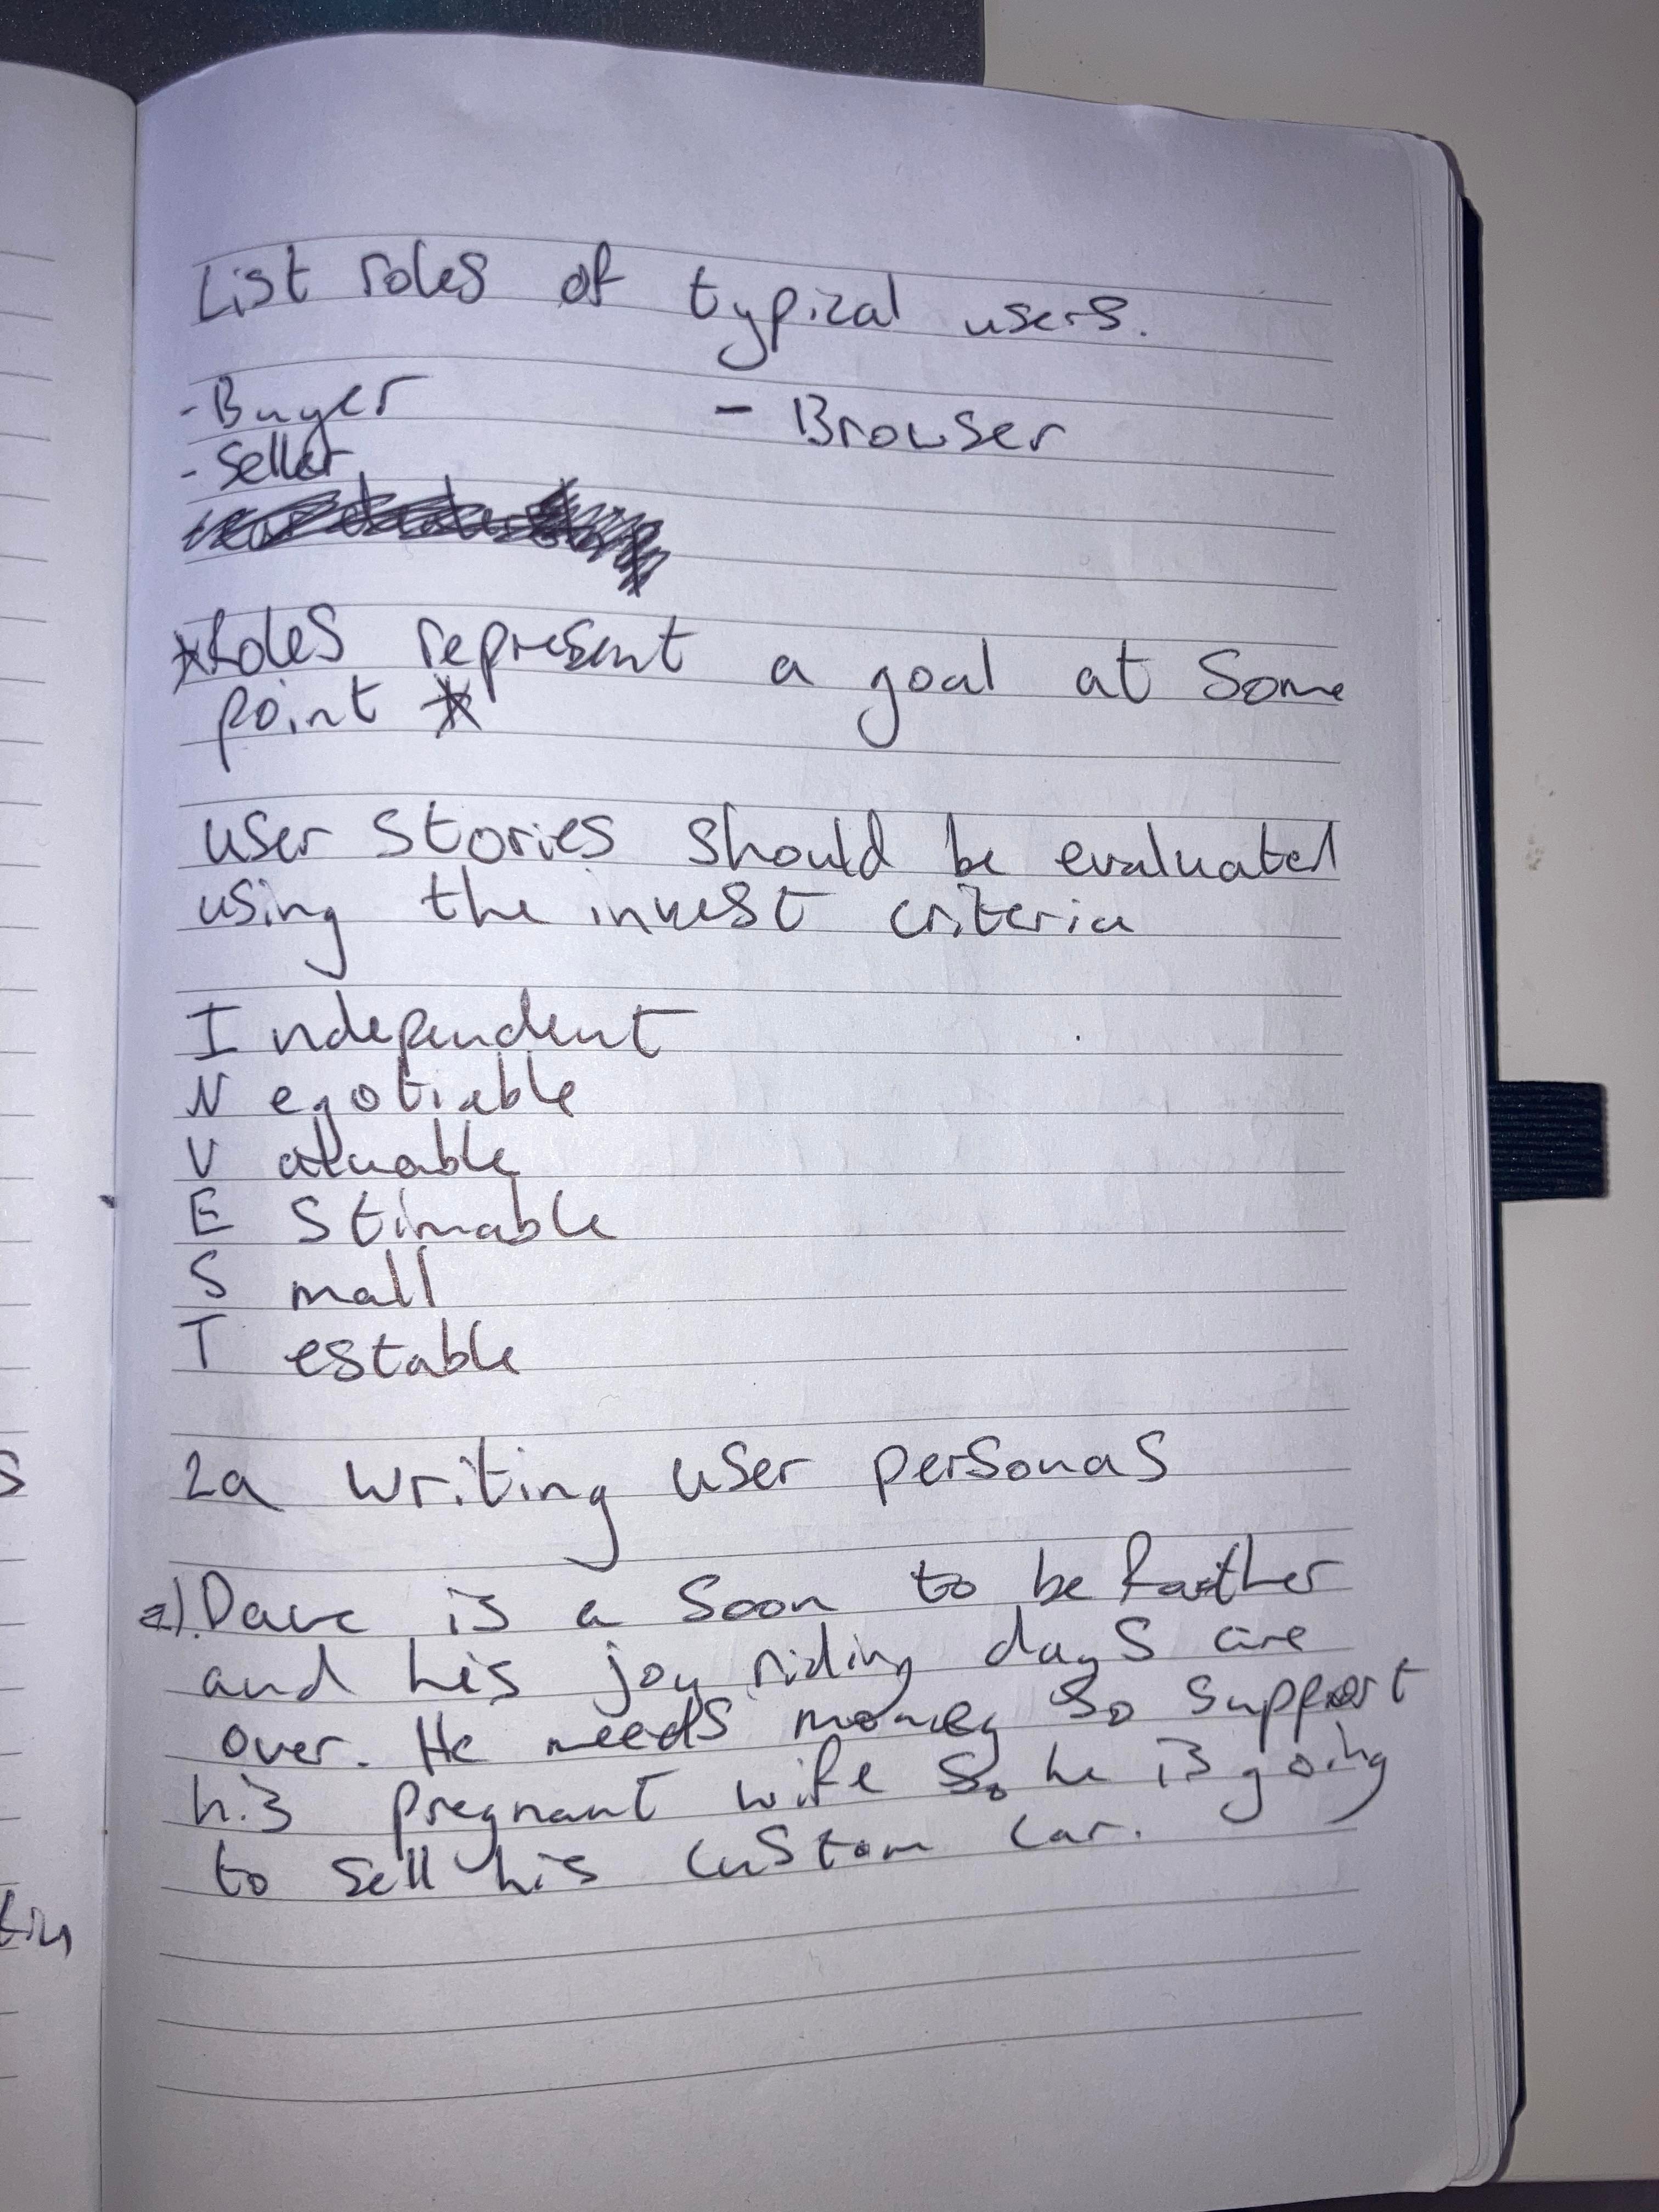 List roles of typical users.
- Buyer - Browser
- Seller
*Roles represent a goal at some
point *
user stories should be evaluated
using the invest criteria
I ndependent
N egotiable
V aluable
E stimable
S mall
T estable
2a writing user personas
a). Dave is a soon to be father
and his joy riding days are
over. He needs money so support
his pregnant wife so he is going
to sell his custom car.